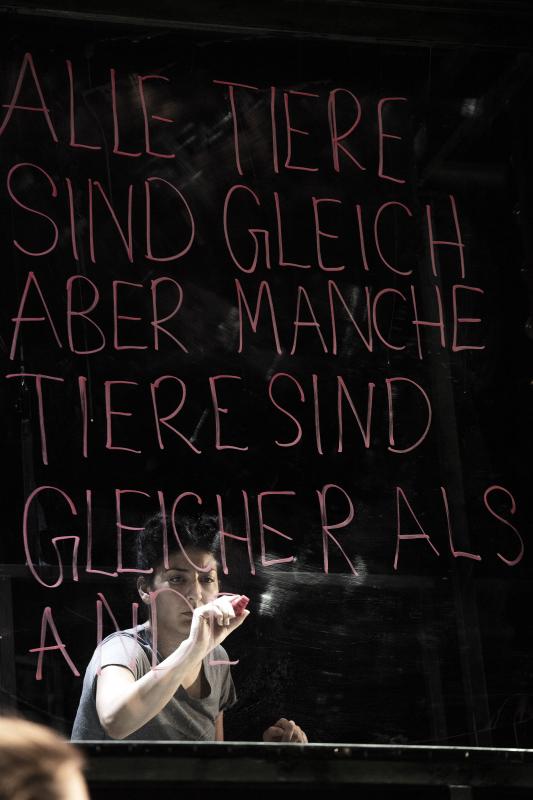 ALLE TIERE
SIND GLEICH
ABER MANCHE
TIERE SIND
GLEICHER ALS
ANDE